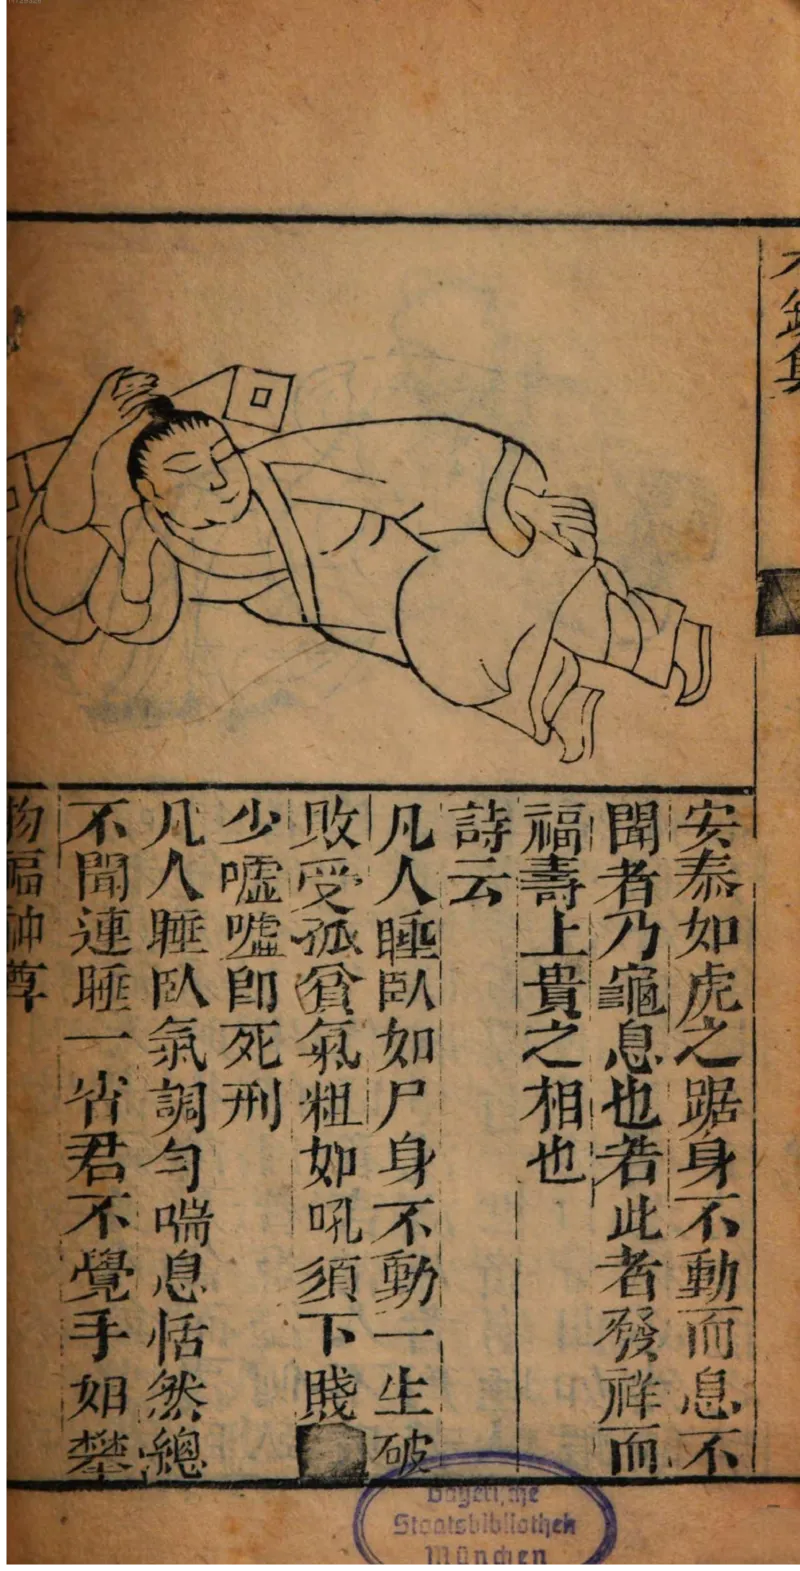 安泰如虎之踞身不動而息不
聞者乃龜息也若此者發祥而
福壽上貴之相也
詩云
凡人睡臥如尸身不動一生破
敗受孤貧氣粗如吼須下賤
少噓噓即死刑
凡人睡臥氣調勻喘息恬然總
不聞連睡一省君不覺手如攀
物福神尊
Bayerische
Staatsbibliothek
München